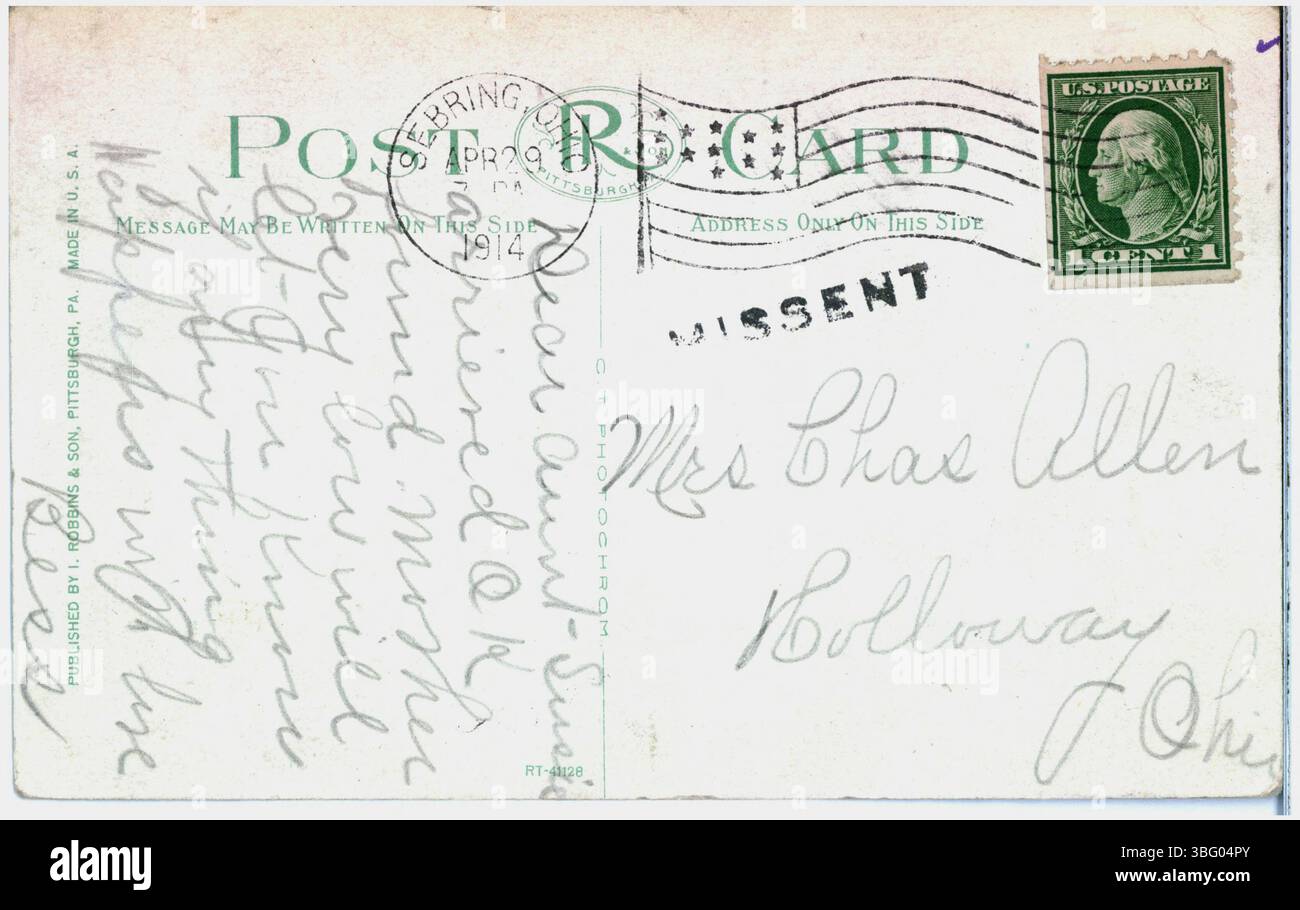 POST CARD
R
& SON
PITTSBURGH
MESSAGE MAY BE WRITTEN ON THIS SIDE
ADDRESS ONLY ON THIS SIDE
SEBRING, OHIO
APR 29
1914
U.S. POSTAGE
1 CENT 1
MISSENT
Dear Aunt Susie
arrived O K
found Mother
very low will
let you know
if any thing
Happens with love
Bess
Mrs Chas Allen
Holloway
Ohio
C. T. PHOTOCHROM
RT-41128
PUBLISHED BY I. ROBBINS & SON, PITTSBURGH, PA. MADE IN U. S. A.
alamy
Image ID: 3BG04PY
www.alamy.com